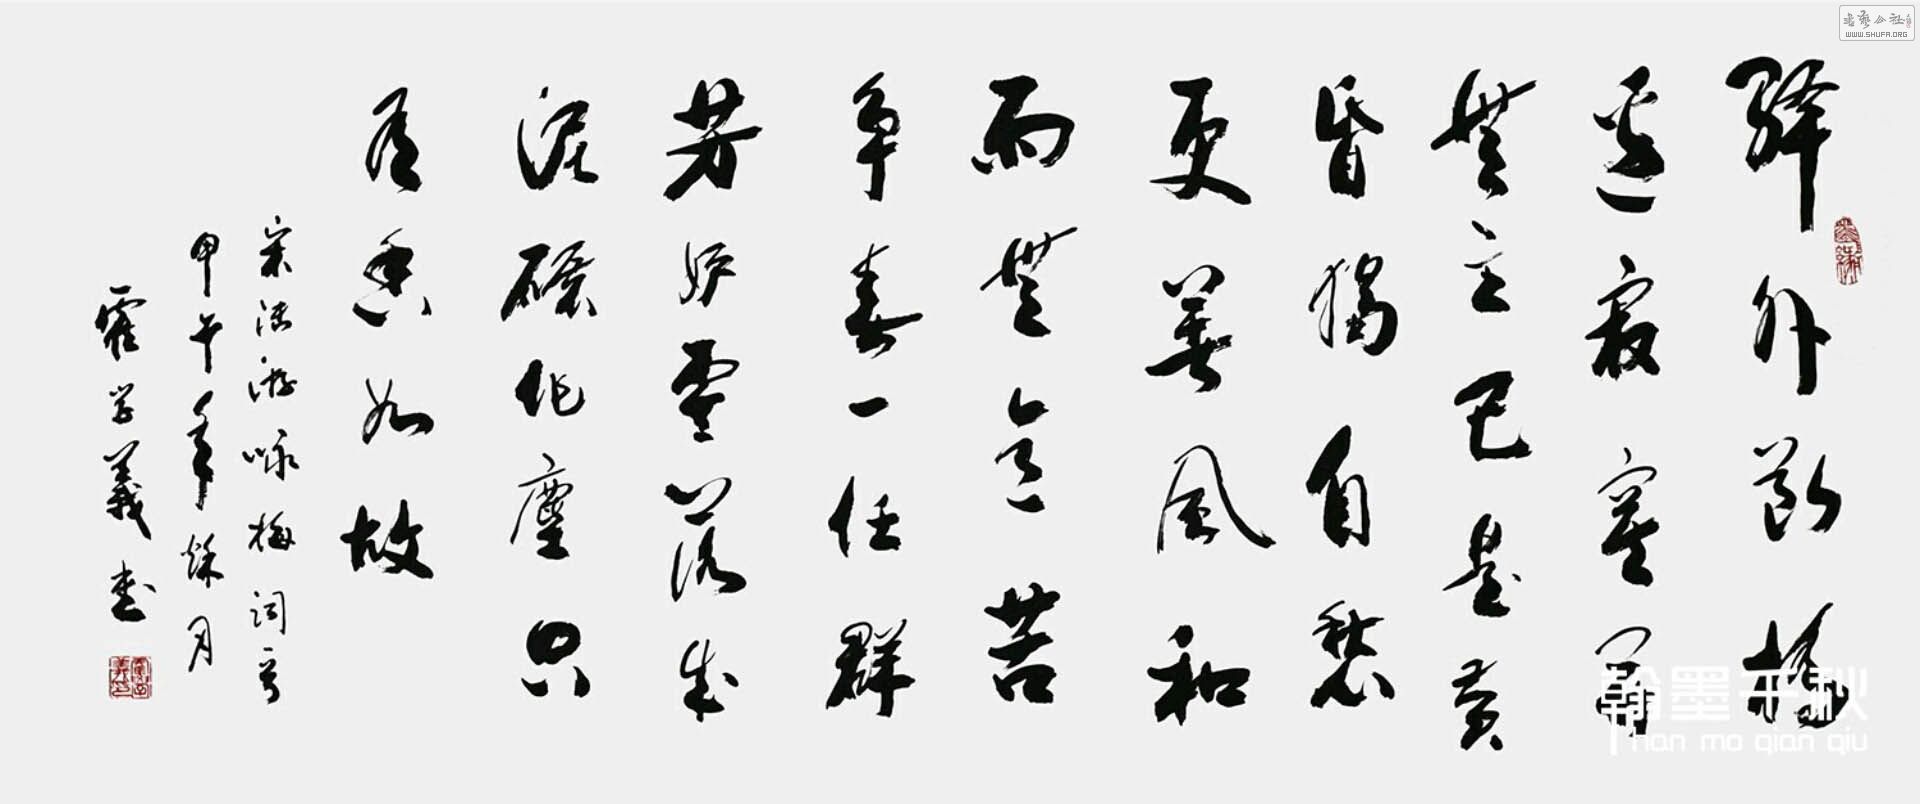 驛外斷橋
邊寂寞開
無主已是黃
昏獨自愁
更著風和
雨無意苦
爭春一任群
芳妒零落成
泥碾作塵只
有香如故
宋陸游咏梅词一首
甲午年秌月
霍学義书
书艺公社
WWW.SHUFA.ORG
翰墨千秋
han mo qian qiu